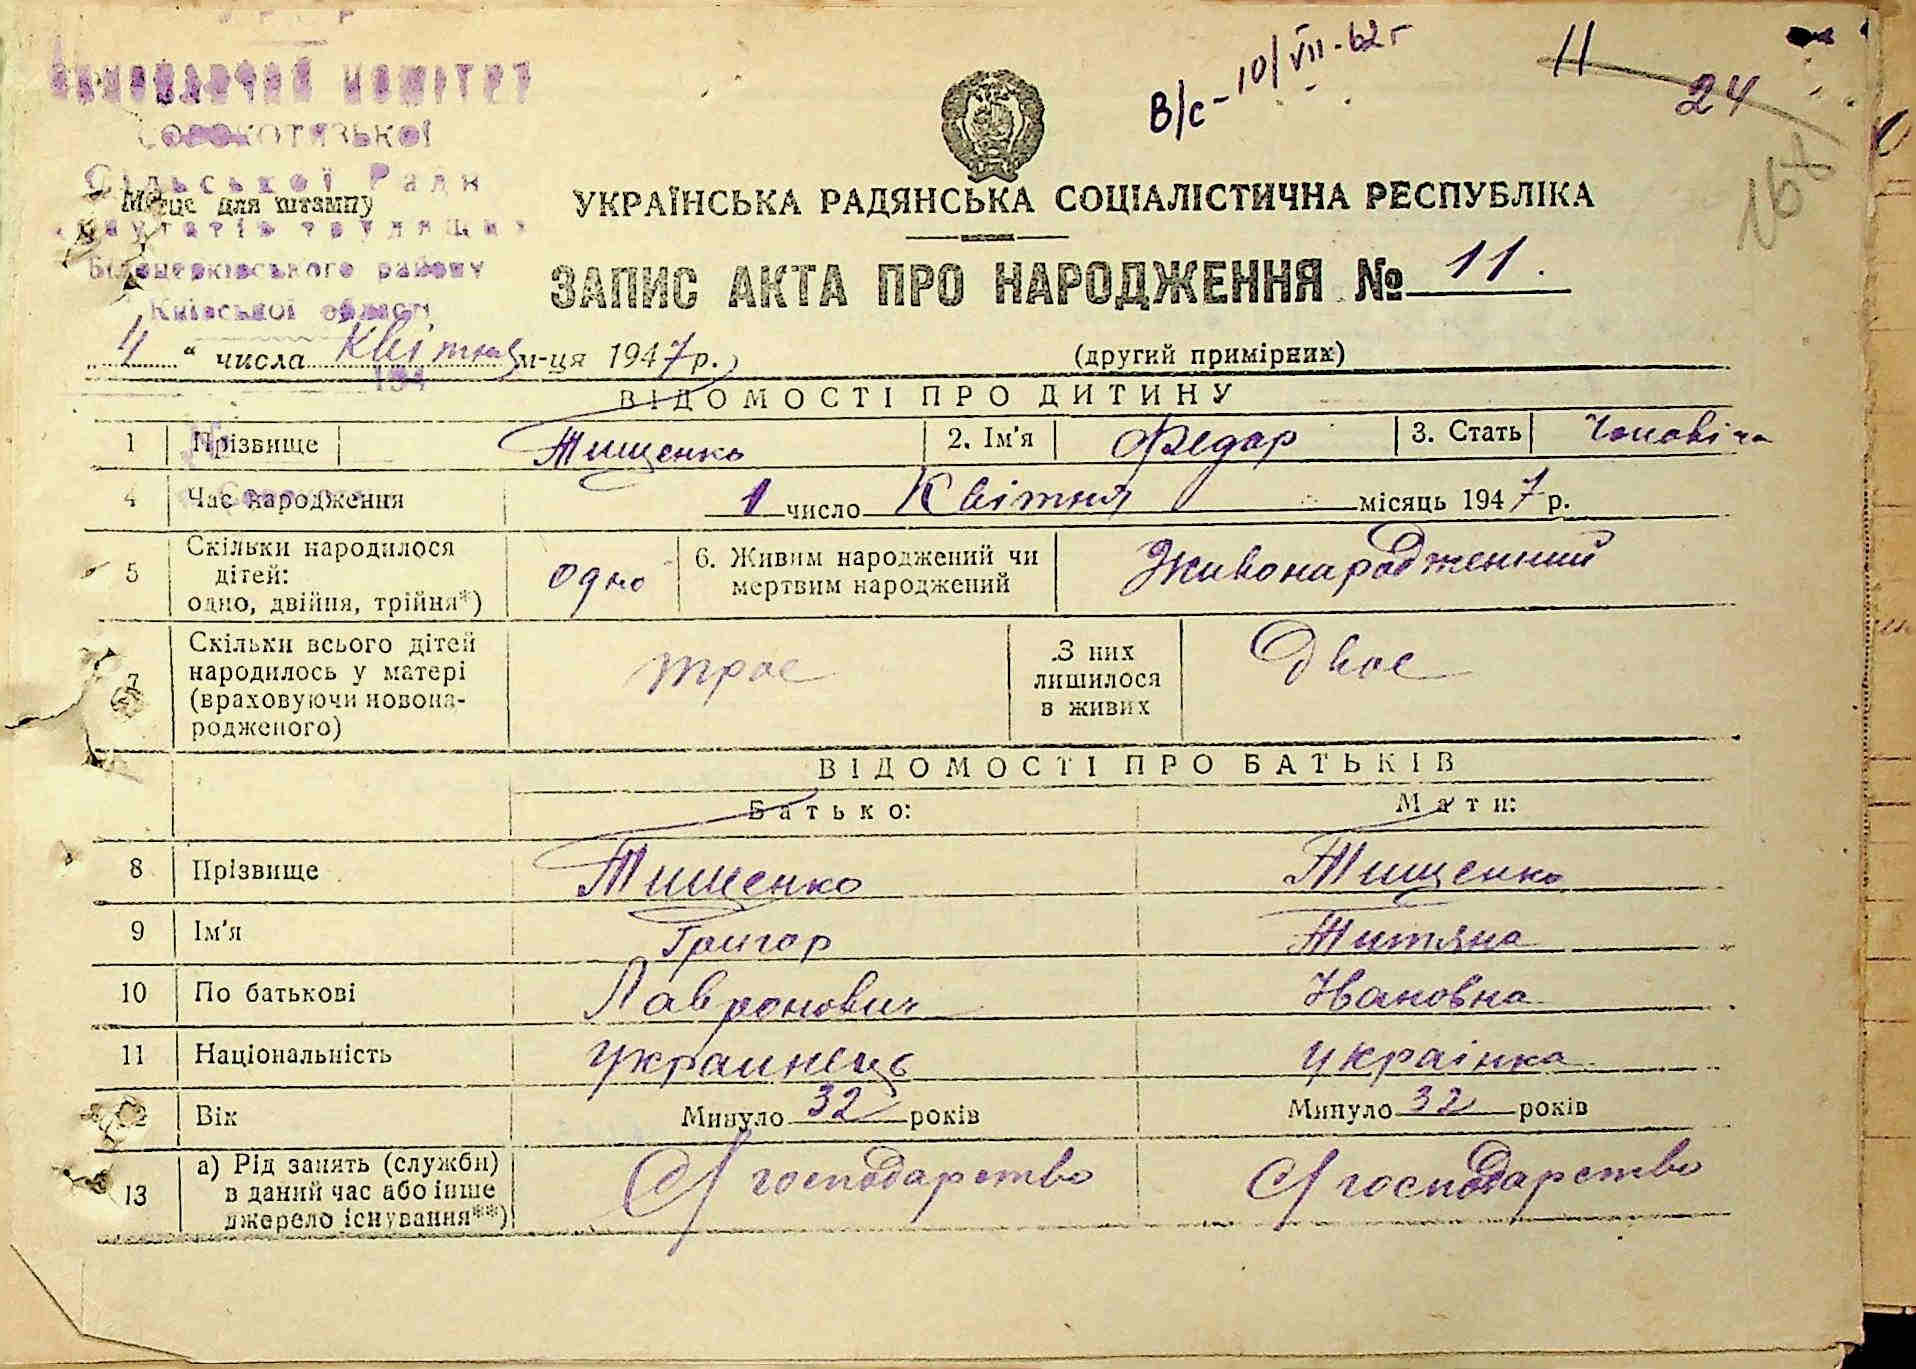 ВИКОНАВЧИЙ КОМІТЕТ
Сорокотязької
Сільської Ради
Місце для штампу
депутатів трудящих
Білоцерківського району
Київської області
194
В/с - 10/VII-62 г
11
24
УКРАЇНСЬКА РАДЯНСЬКА СОЦІАЛІСТИЧНА РЕСПУБЛІКА
ЗАПИС АКТА ПРО НАРОДЖЕННЯ № 11.
4 " числа Квітня м-ця 1947 р.
(другий примірник)
ВІДОМОСТІ ПРО ДИТИНУ
1 Прізвище Тищенко 2. Ім'я Федар 3. Стать Чоловіча
4 Час народження 1 число Квітня місяць 1947 р.
5 Скільки народилося дітей: одно, двійня, трійня*) одно 6. Живим народжений чи мертвим народжений Живонародженний
7 Скільки всього дітей народилось у матері (враховуючи новонародженого) трое З них лишилося в живих Двое
ВІДОМОСТІ ПРО БАТЬКІВ
Батько: Мати:
8 Прізвище Тищенко Тищенко
9 Ім'я Григор Титяна
10 По батькові Лавронович Івановна
11 Національність украинець українка
12 Вік Минуло 32 років Минуло 32 років
13 а) Рід занять (служби) в даний час або інше джерело існування**) С/господарство С/господарство